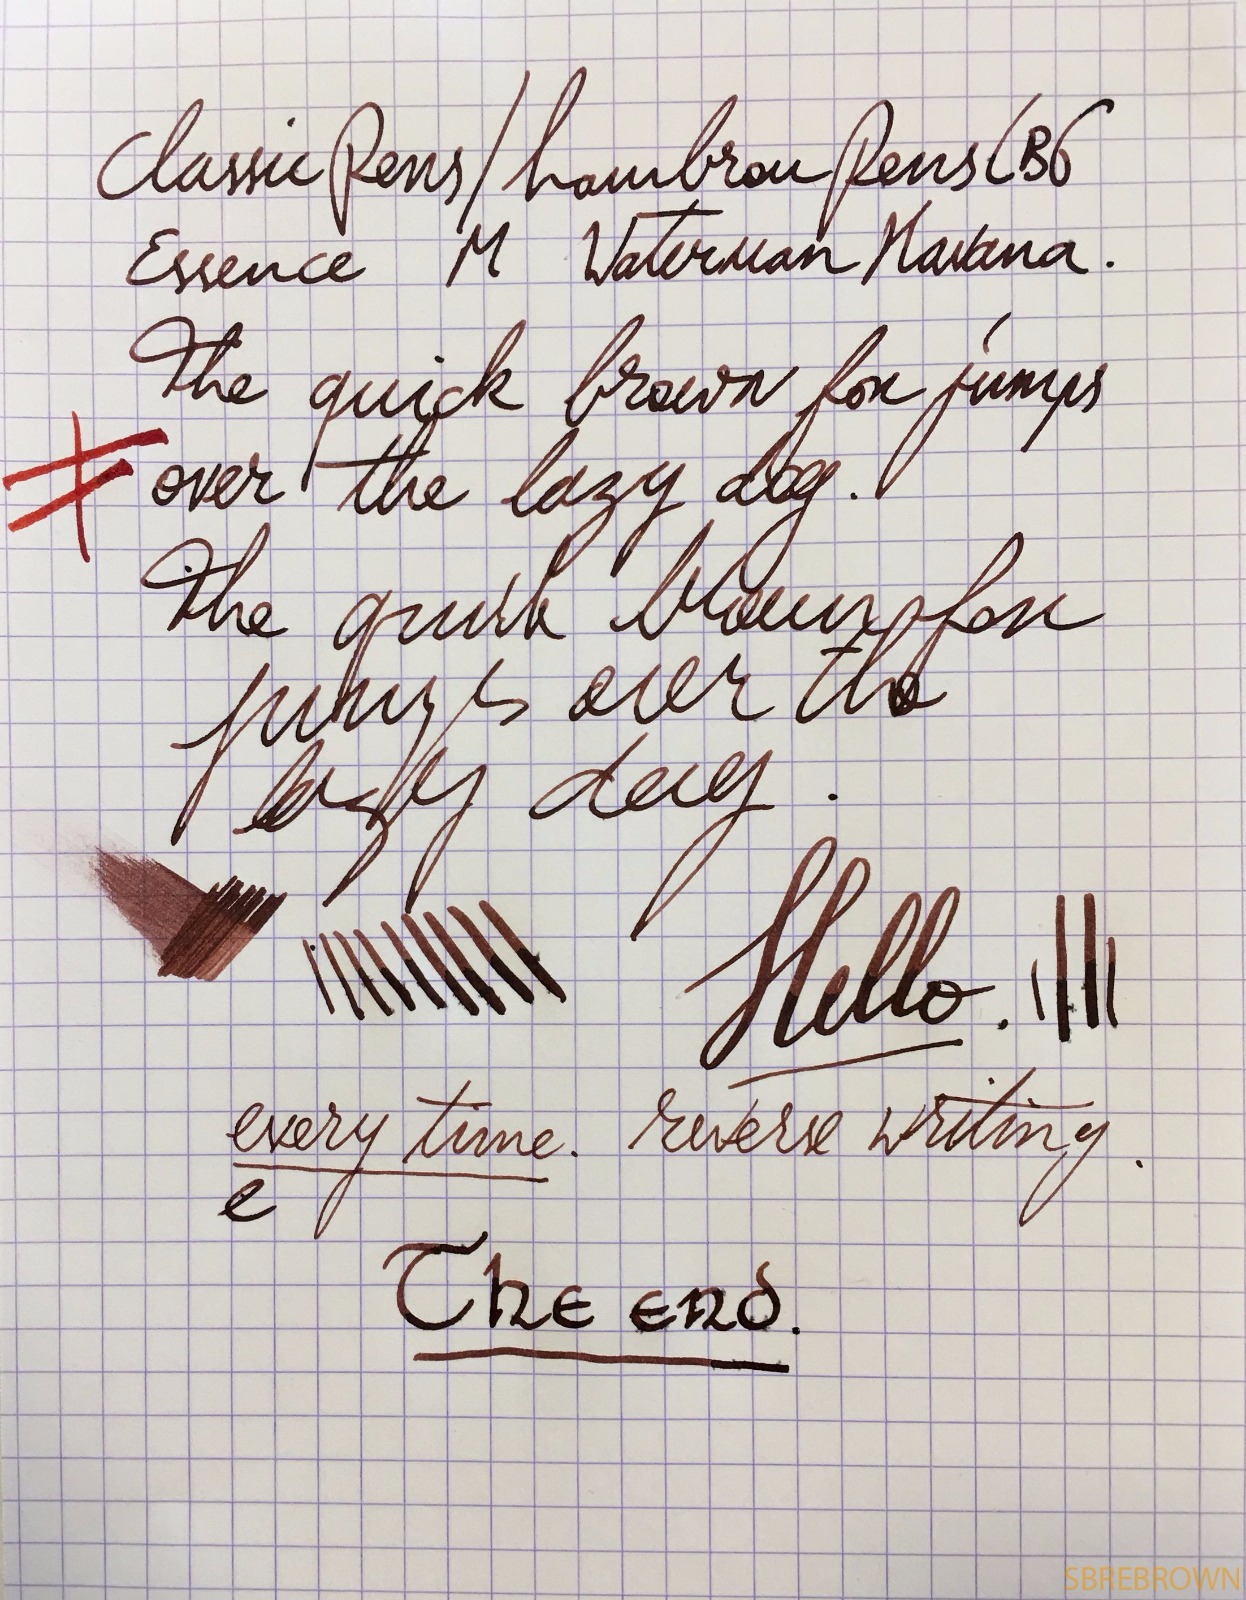 Classic Pens/Lambrou Pens LB6
Essence M Waterman Havana.
The quick brown fox jumps
over the lazy dog.
The quick brown fox
jumps over the
lazy dog.
Hello.
every time. reverse writing.
e
The end.
SBREBROWN